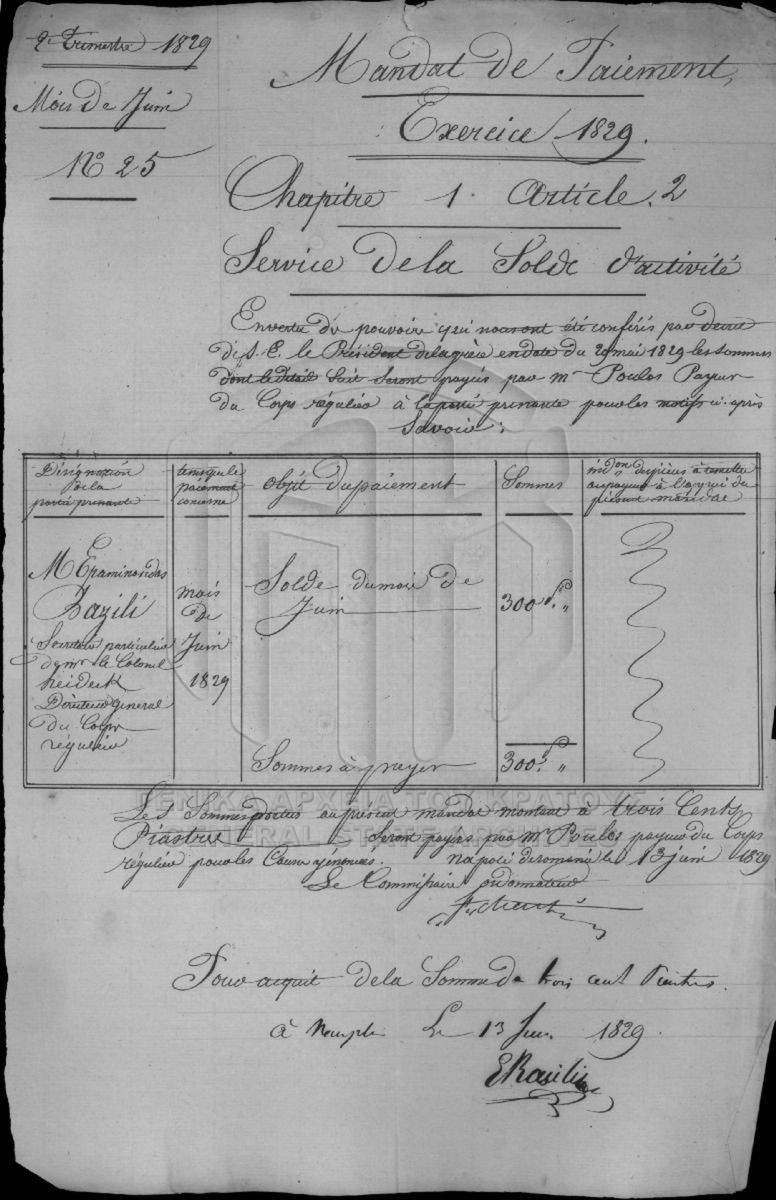 2e Trimestre 1829
Mois de Juin
No 25
Mandat de Paiement,
Exercice 1829.
Chapitre 1. Article. 2
Service de la Solde d'activité
En vertu du pouvoir qui nous ont été conférés par décret
de S. E. le Président de la grèce en date du 29 mai 1829 les sommes
dont le détail suit seront payés par mr Poulos Payeur
du Corps régulier à la partie prenante pour les motifs ci-après
Savoir:
Désignation
de la
partie prenante
temsqule
paiement
concerne
objet du paiement
Sommes
indon des pièces à remettre
au payeur à l'appui du
présent mandat
M Epaminondas
Bazili
Secrétaire particulier
de mr le Colonel
heideck
Directeur général
du Corps
régulier
mois
de
Juin
1829
Solde du mois de
Juin
300 P. "
Sommes à payer
300. P "
Les Sommes portées au présent mandat montant à trois Cents
Piastres seront payés par Mr Poulos payeur du Corps
régulier pour les Causes énoncées. napoli de romanie le 13 juin 1829
Le Commissaire ordonnateur
Pour acquit de la Somme de trois cent Piastres.
à Nauplie Le 13 Juin. 1829.
EBasili
ΓΕΝΙΚΑ ΑΡΧΕΙΑ ΤΟΥ ΚΡΑΤΟΥΣ
GENERAL STATE ARCHIVES